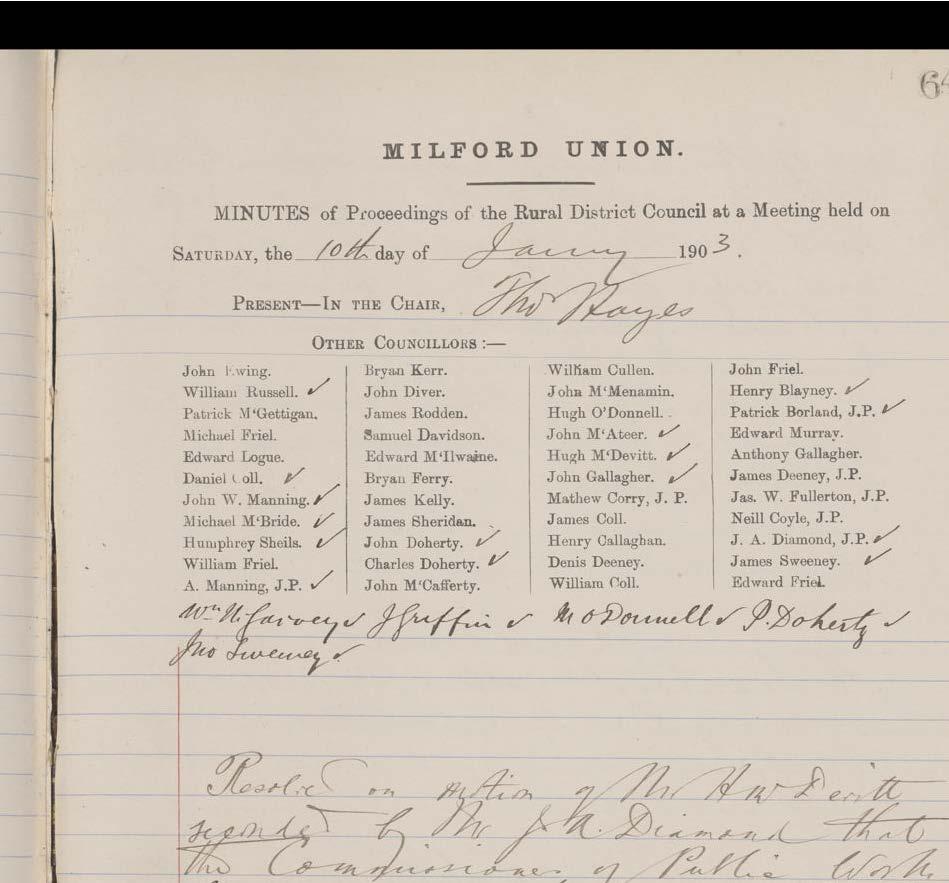 64
MILFORD UNION.
MINUTES of Proceedings of the Rural District Council at a Meeting held on
SATURDAY, the 10th day of Jany 1903.
PRESENT—IN THE CHAIR, Thos Hayes
OTHER COUNCILLORS :—
John Ewing.
William Russell. ✓
Patrick M‘Gettigan.
Michael Friel.
Edward Logue.
Daniel Coll. ✓
John W. Manning. ✓
Michael M‘Bride. ✓
Humphrey Sheils. ✓
William Friel.
A. Manning, J.P. ✓
Bryan Kerr.
John Diver.
James Rodden.
Samuel Davidson.
Edward M‘Ilwaine.
Bryan Ferry.
James Kelly.
James Sheridan.
John Doherty. ✓
Charles Doherty. ✓
John M‘Cafferty.
William Cullen.
John M‘Menamin.
Hugh O’Donnell.
John M‘Ateer. ✓
Hugh M‘Devitt. ✓
John Gallagher. ✓
Mathew Corry, J. P.
James Coll.
Henry Callaghan.
Denis Deeney.
William Coll.
John Friel.
Henry Blayney. ✓
Patrick Borland, J.P. ✓
Edward Murray.
Anthony Gallagher.
James Deeney, J.P.
Jas. W. Fullerton, J.P.
Neill Coyle, J.P.
J. A. Diamond, J.P. ✓
James Sweeney. ✓
Edward Friel.
Wm H. Garvey ✓ J Griffin ✓ M O Donnell ✓ P. Doherty ✓
Jno Sweeney ✓
Resolved on motion of Mr H McDevitt
seconded by Mr J A. Diamond that
the Commissioners of Public Works